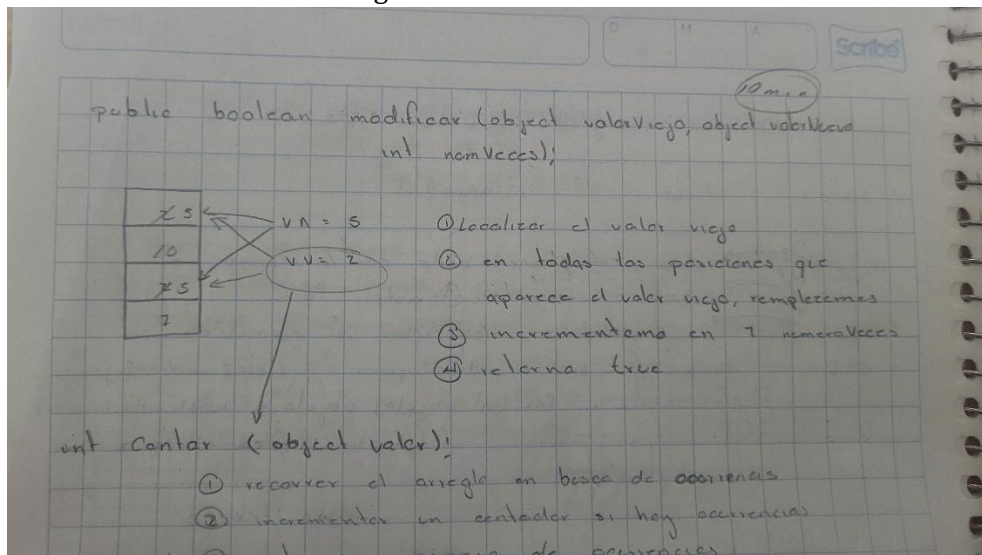 D M A
Scribe
10 min
public boolean modificar (object valorViejo, object valorNuevo
int numVeces);
2 5
10
2 5
7
vn = 5
vv = 2
① Localizar el valor viejo
② en todas las posiciones que
aparece el valor viejo, remplezemos
③ incrementama en 1 numeroVeces
④ retorna true
int Contar (object valor);
① recorrer el arreglo en busca de ocorrencias
② incrementar un contador si hay ocurrencias
de ocurrencias